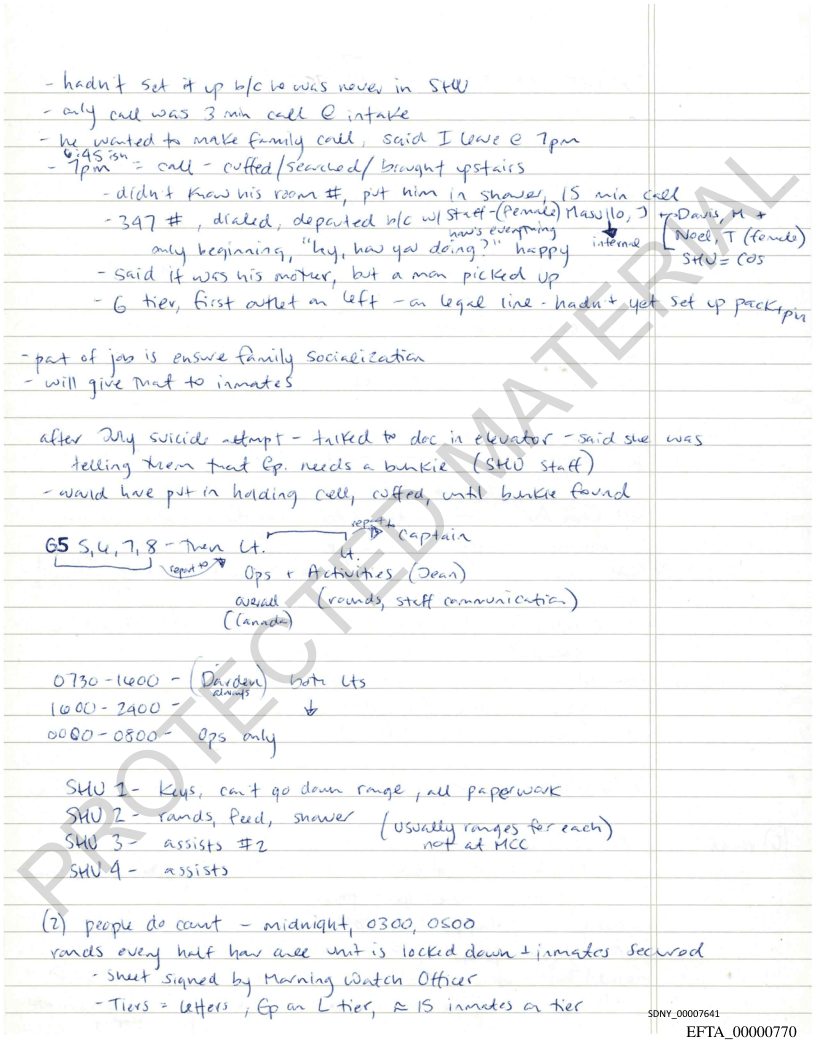 - hadn't set it up b/c he was never in SHU
- only call was 3 min call @ intake
- he wanted to make family call, said I leave @ 7pm
6:45 ish
- 7pm = call - cuffed/searched/brought upstairs
- didn't know his room #, put him in shower, 15 min call
- 347 #, dialed, departed b/c w/ staff - (female) Masullo, J + Davis, M +
how's everything
internal
Noel, T (female)
only beginning, "hy, how you doing?" happy
SHU = COS
- said it was his mother, but a man picked up
- G tier, first outlet on left - on legal line - hadn't yet set up pack + pin
- part of job is ensure family socialization
- will give that to inmates
after July suicide attmpt - talked to doc in elevator - said she was
telling them that Ep. needs a bunkie (SHU staff)
- would have put in holding cell, cuffed, until bunkie found
report to
Captain
GS 5, 6, 7, 8 - then Lt.
Lt.
report to
Ops + Activities (Jean)
overall (rounds, staff communication)
(Canada)
0730-1600 - (Darden) both Lts
always
1600-2400 -
0000-0800 - Ops only
SHU 1 - Keys, can't go down range, all paperwork
SHU 2 - rounds, feed, shower (usually ranges for each)
SHU 3 - assists #2
not at MCC
SHU 4 - assists
(2) people do count - midnight, 0300, 0500
rounds every half hour once unit is locked down + inmates secured
- sheet signed by Morning Watch Officer
- Tiers = letters, Ep on L tier, ≈ 15 inmates on tier
PROTECTED MATERIAL
SDNY_00007641
EFTA_00000770